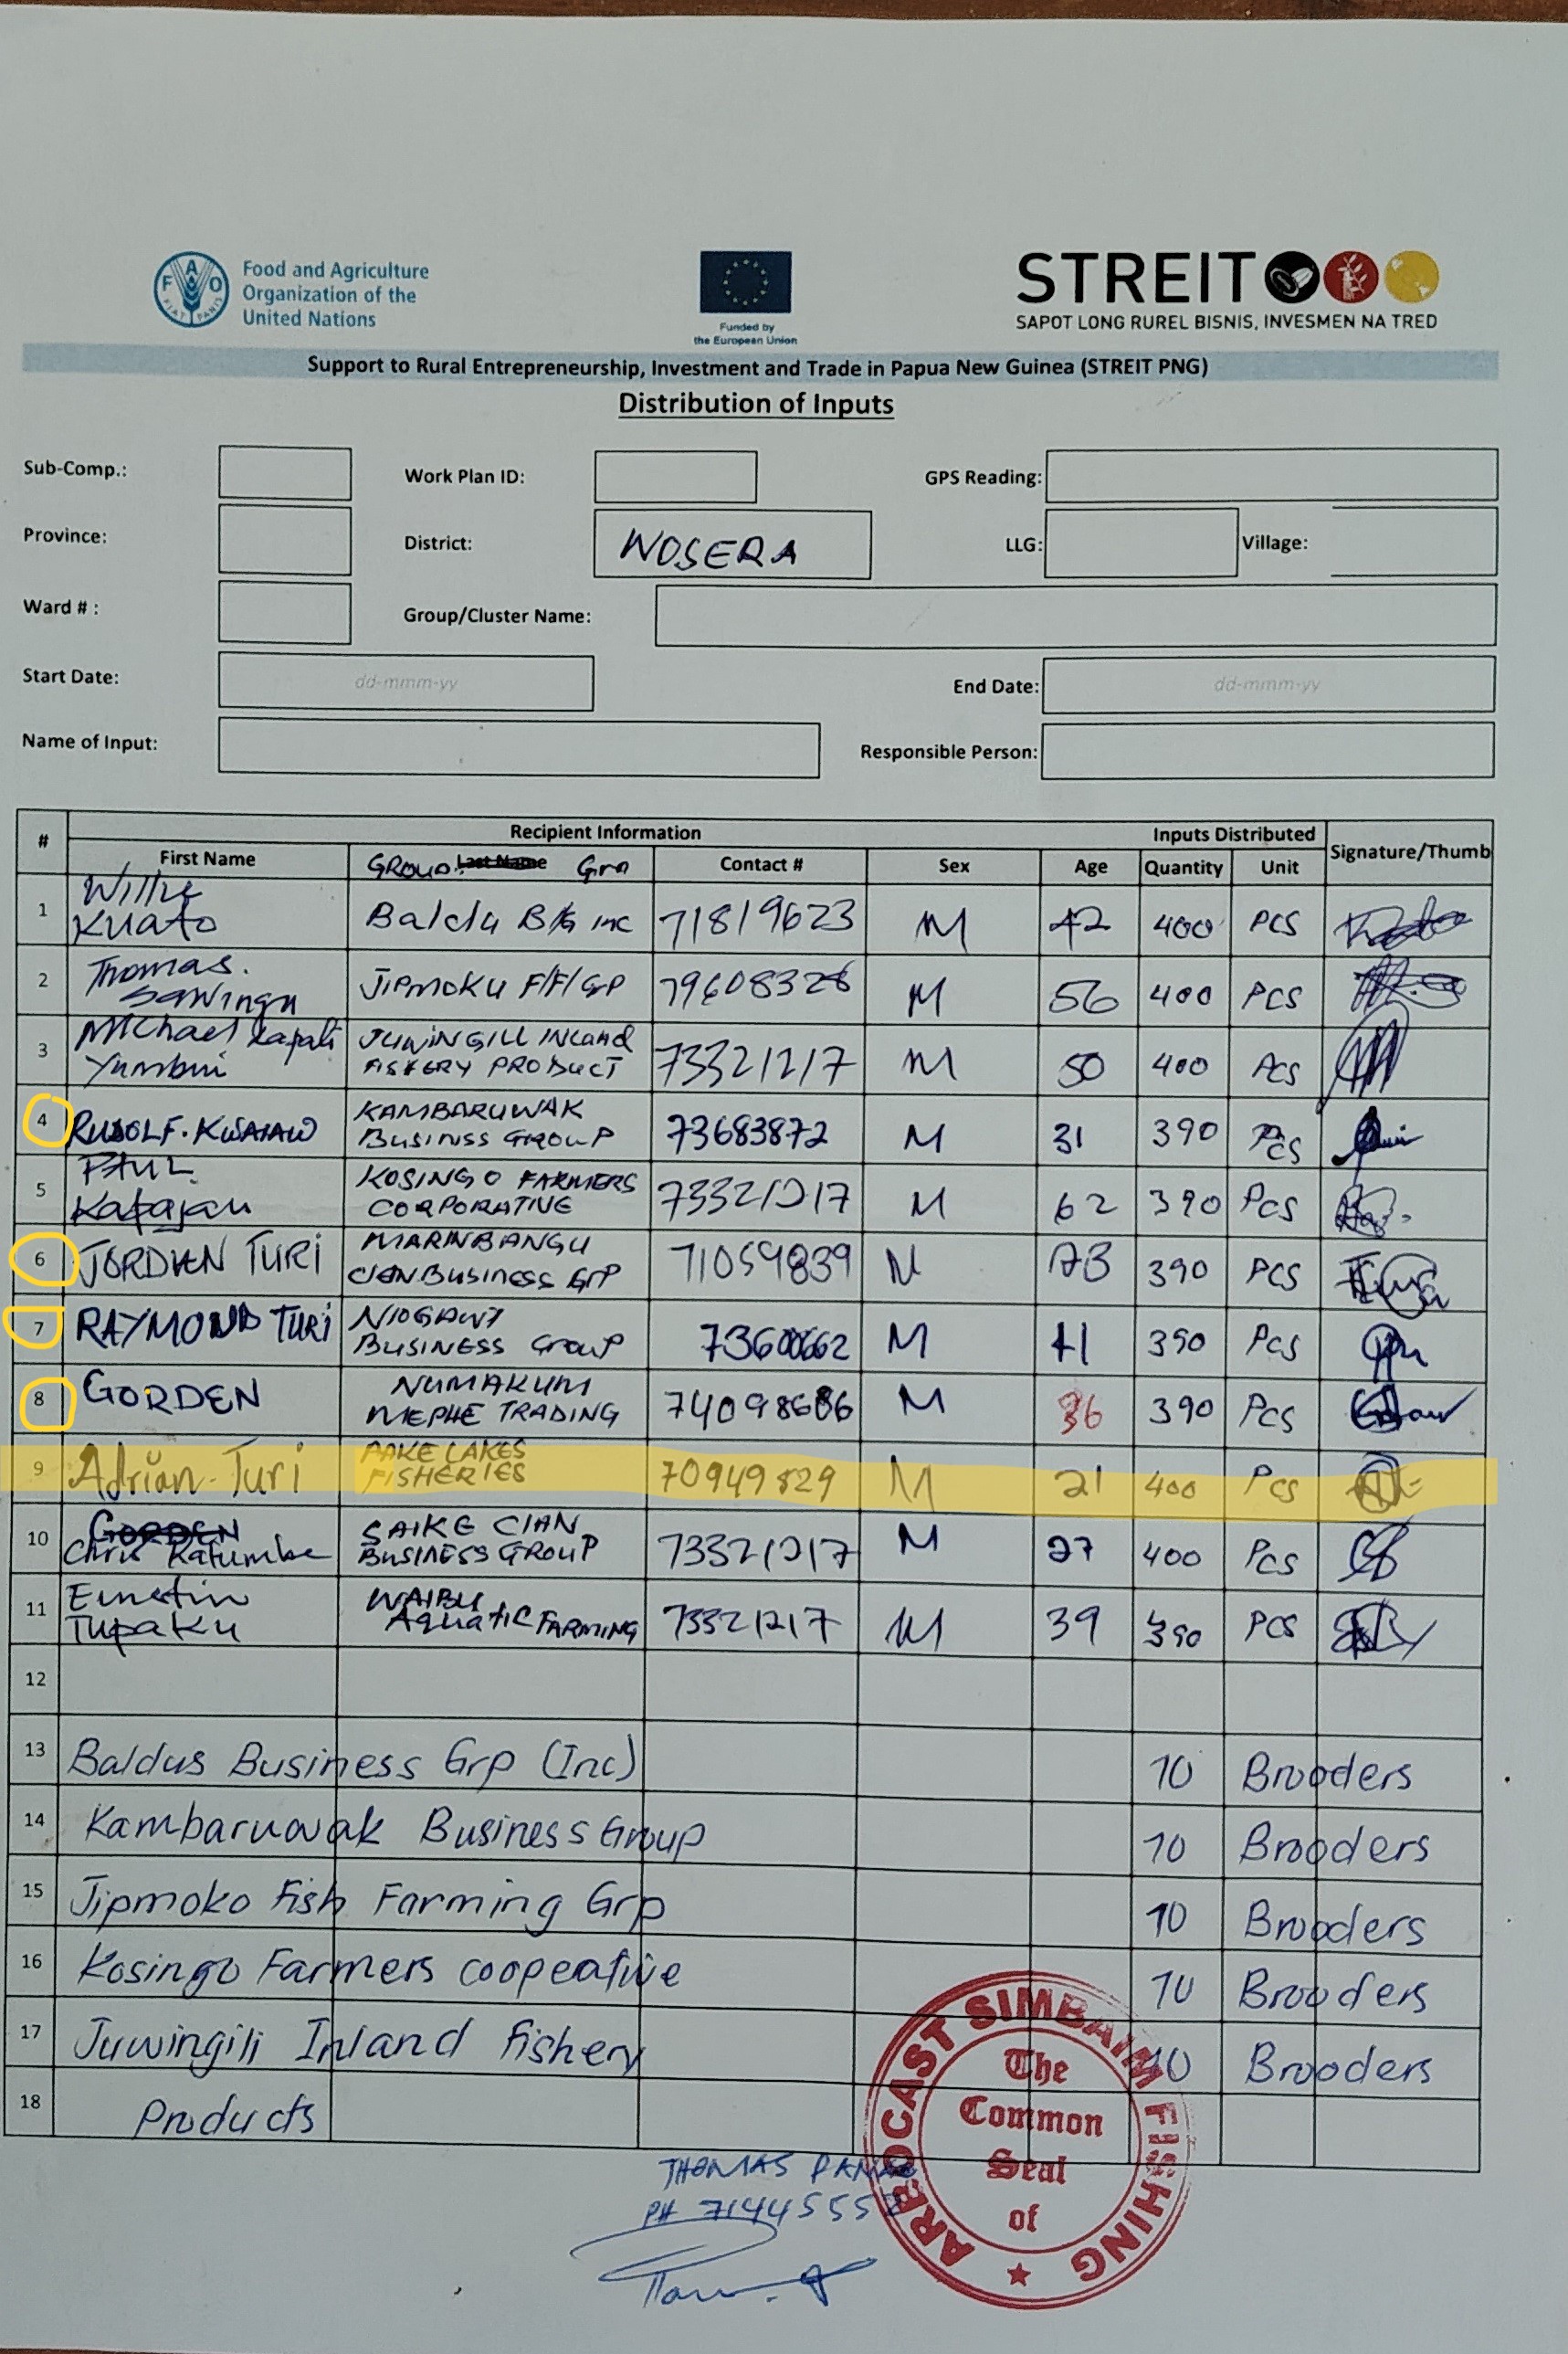 Food and Agriculture
Organization of the
United Nations
Funded by
the European Union
STREIT
SAPOT LONG RUREL BISNIS, INVESMEN NA TRED
Support to Rural Entrepreneurship, Investment and Trade in Papua New Guinea (STREIT PNG)
Distribution of Inputs
Sub-Comp.:
Work Plan ID:
GPS Reading:
Province:
District: WOSERA
LLG:
Village:
Ward # :
Group/Cluster Name:
Start Date: dd-mmm-yy
End Date: dd-mmm-yy
Name of Input:
Responsible Person:
# Recipient Information Inputs Distributed Signature/Thumb
First Name GROUP Last Name Grp Contact # Sex Age Quantity Unit
1 Willie Kuato Baldu B/G inc 71819623 M 42 400 PCS
2 Thomas. Sawingu Jipmoku F/F/GP 79608328 M 56 400 PCS
3 Michael Yumbui JUWINGILL INLand FISHERY PRODUCT 73321217 M 50 400 PCS
4 RUDOLF. KAMBARUWAK BUSINSS GROUP 73683872 M 31 390 PCS
5 PAUL Kapajau KOSINGO FARMERS CORPORATIVE 73321217 M 62 390 PCS
6 JORDAN TURI MARINBANGU CLAN BUSINESS GRP 71059839 M 390 PCS
7 RAYMOND TURI BUSINESS GROUP M 41 390 PCS
8 GORDEN NUMAKUM MEPHE TRADING 74098686 M 36 390 PCS
9 Adrian Turi PAKE LAKES FISHERIES 70949829 M 21 400 PCS
10 GORDEN Chris Katumbe SAIKE CLAN BUSINESS GROUP 73321217 M 27 400 PCS
11 Ernestin Tupaku WAIBU AquatiC FARMING 73321217 M 39 390 PCS
12
13 Baldus Business Grp (Inc) 10 Brooders
14 Kambaruwak Business Group 10 Brooders
15 Jipmoko Fish Farming Grp 10 Brooders
16 Kosingo Farmers coopeative 10 Brooders
17 Juwingili Inland Fishery 10 Brooders
18 Products
THOMAS
PH 71445558
AREOCAST SIMBAIM FISHING
The
Common
Seal
of